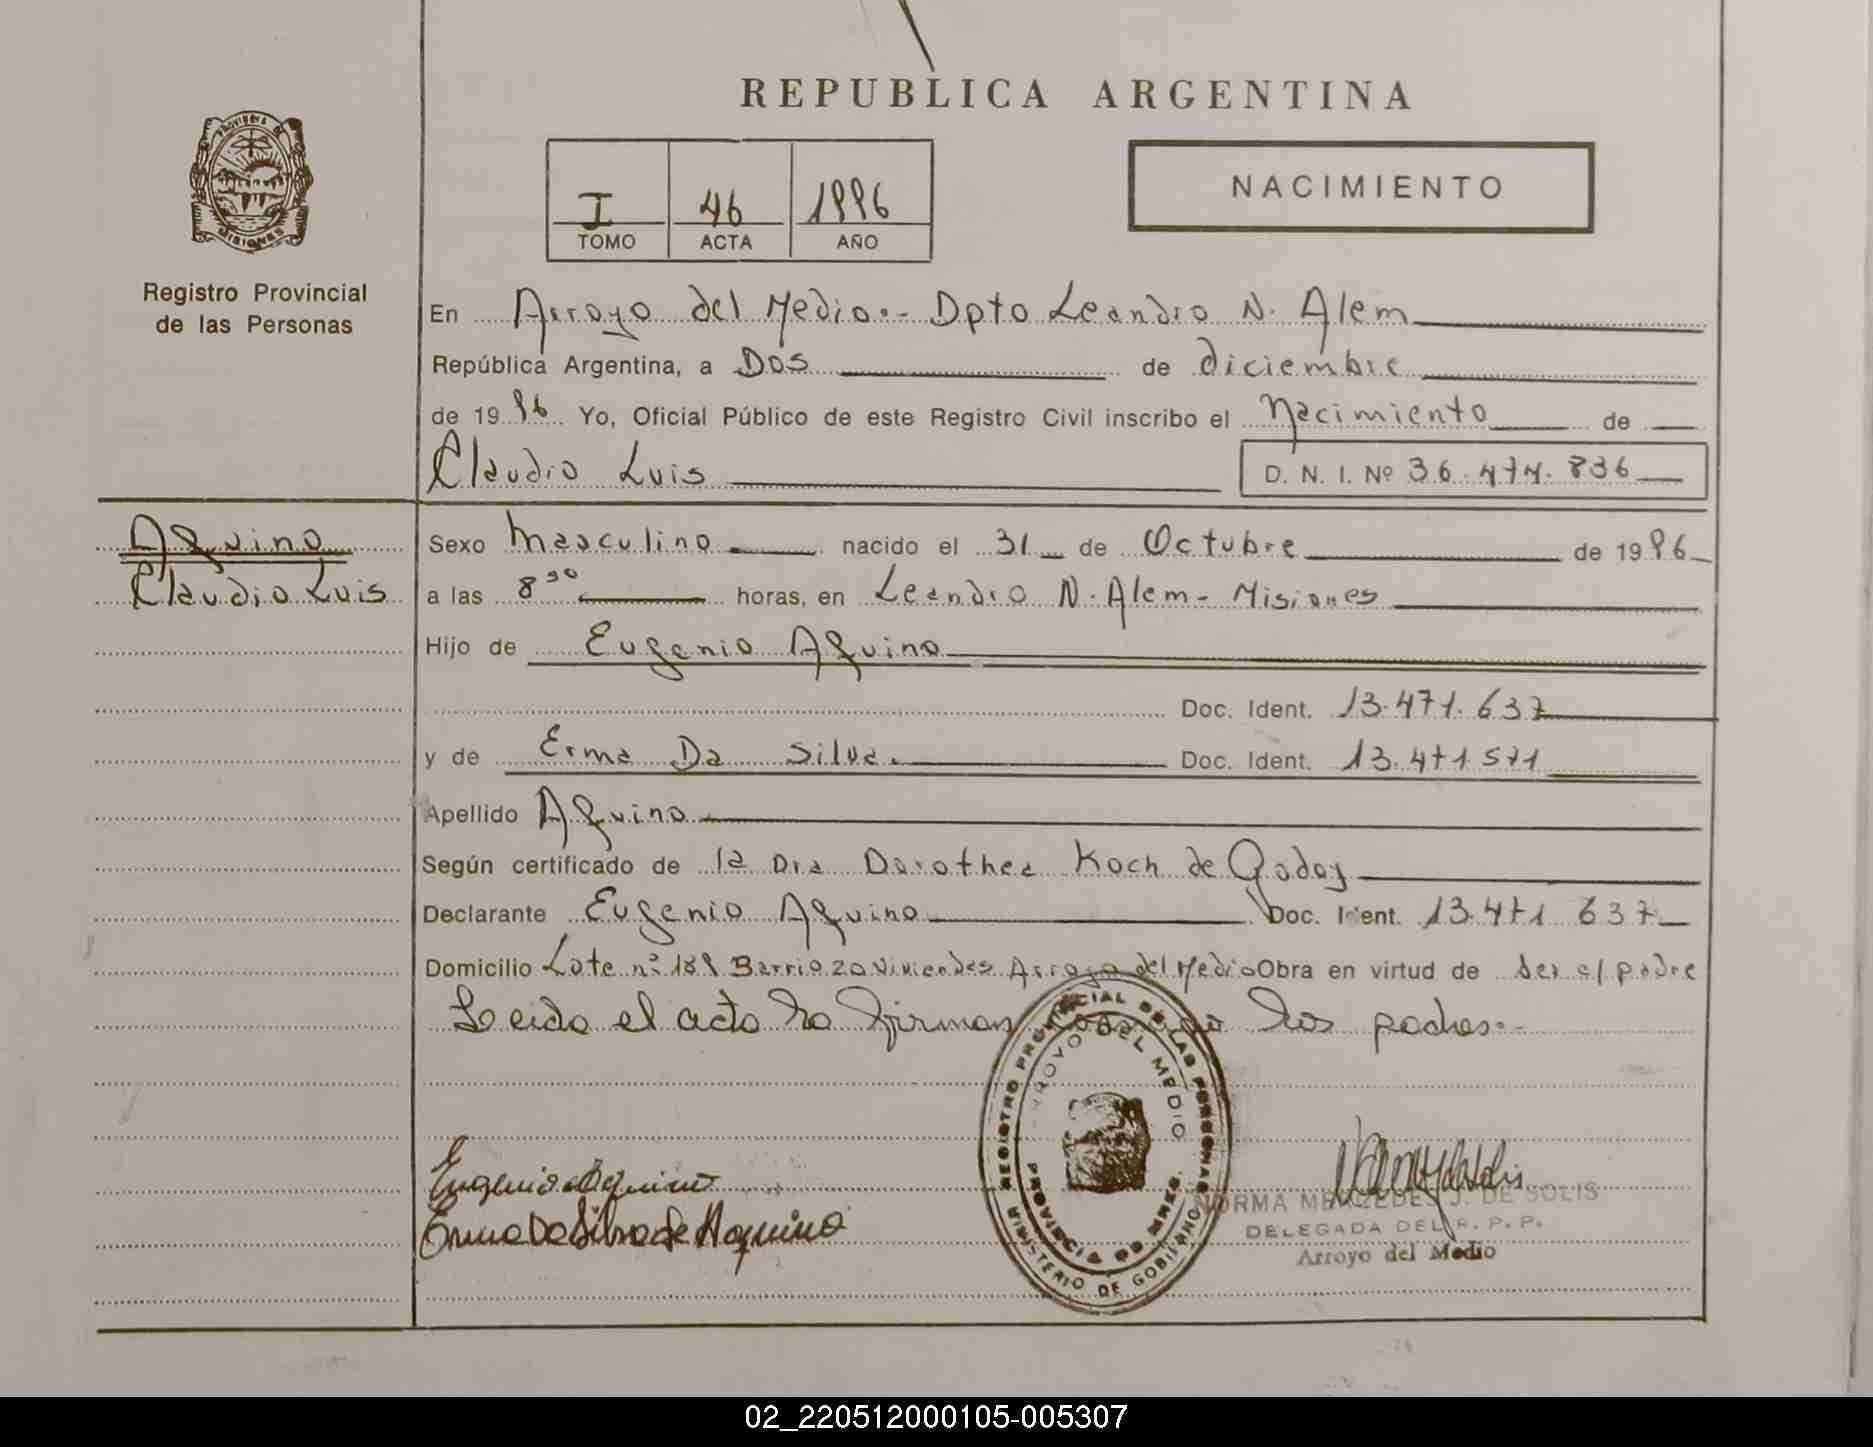 REPUBLICA ARGENTINA
PROVINCIA DE
MISIONES
Registro Provincial
de las Personas
I 46 1996
TOMO ACTA AÑO
NACIMIENTO
En Arroyo del Medio.- Dpto Leandro N. Alem
República Argentina, a Dos de diciembre
de 1996 Yo, Oficial Público de este Registro Civil inscribo el Nacimiento de
Claudio Luis D. N. I. Nº 36.474.836
Aquino
Claudio Luis
Sexo Masculino nacido el 31 de Octubre de 1996
a las 8 30 horas, en Leandro N. Alem - Misiones
Hijo de Eugenio Aquino
Doc. Ident. 13.471.637
y de Erma Da Silva. Doc. Ident. 13.471 571
Apellido Aquino
Según certificado de la Dra Dorothea Koch de Godoy
Declarante Eugenio Aquino Doc. Ident. 13.471 637
Domicilio Lote nº 189 Barrio 20 Viviendas Arroyo del Medio Obra en virtud de ser el padre
Leida el acta la firman los padres.-
REGISTRO PROVINCIAL DE LAS PERSONAS
ARROYO DEL MEDIO
PROVINCIA DE MNES.
MINISTERIO DE GOBIERNO
Eugenio Aquino
Erma Da Silva de Aquino
NORMA MERCEDES J. DE SOLIS
DELEGADA DEL R. P. P.
Arroyo del Medio
02_220512000105-005307